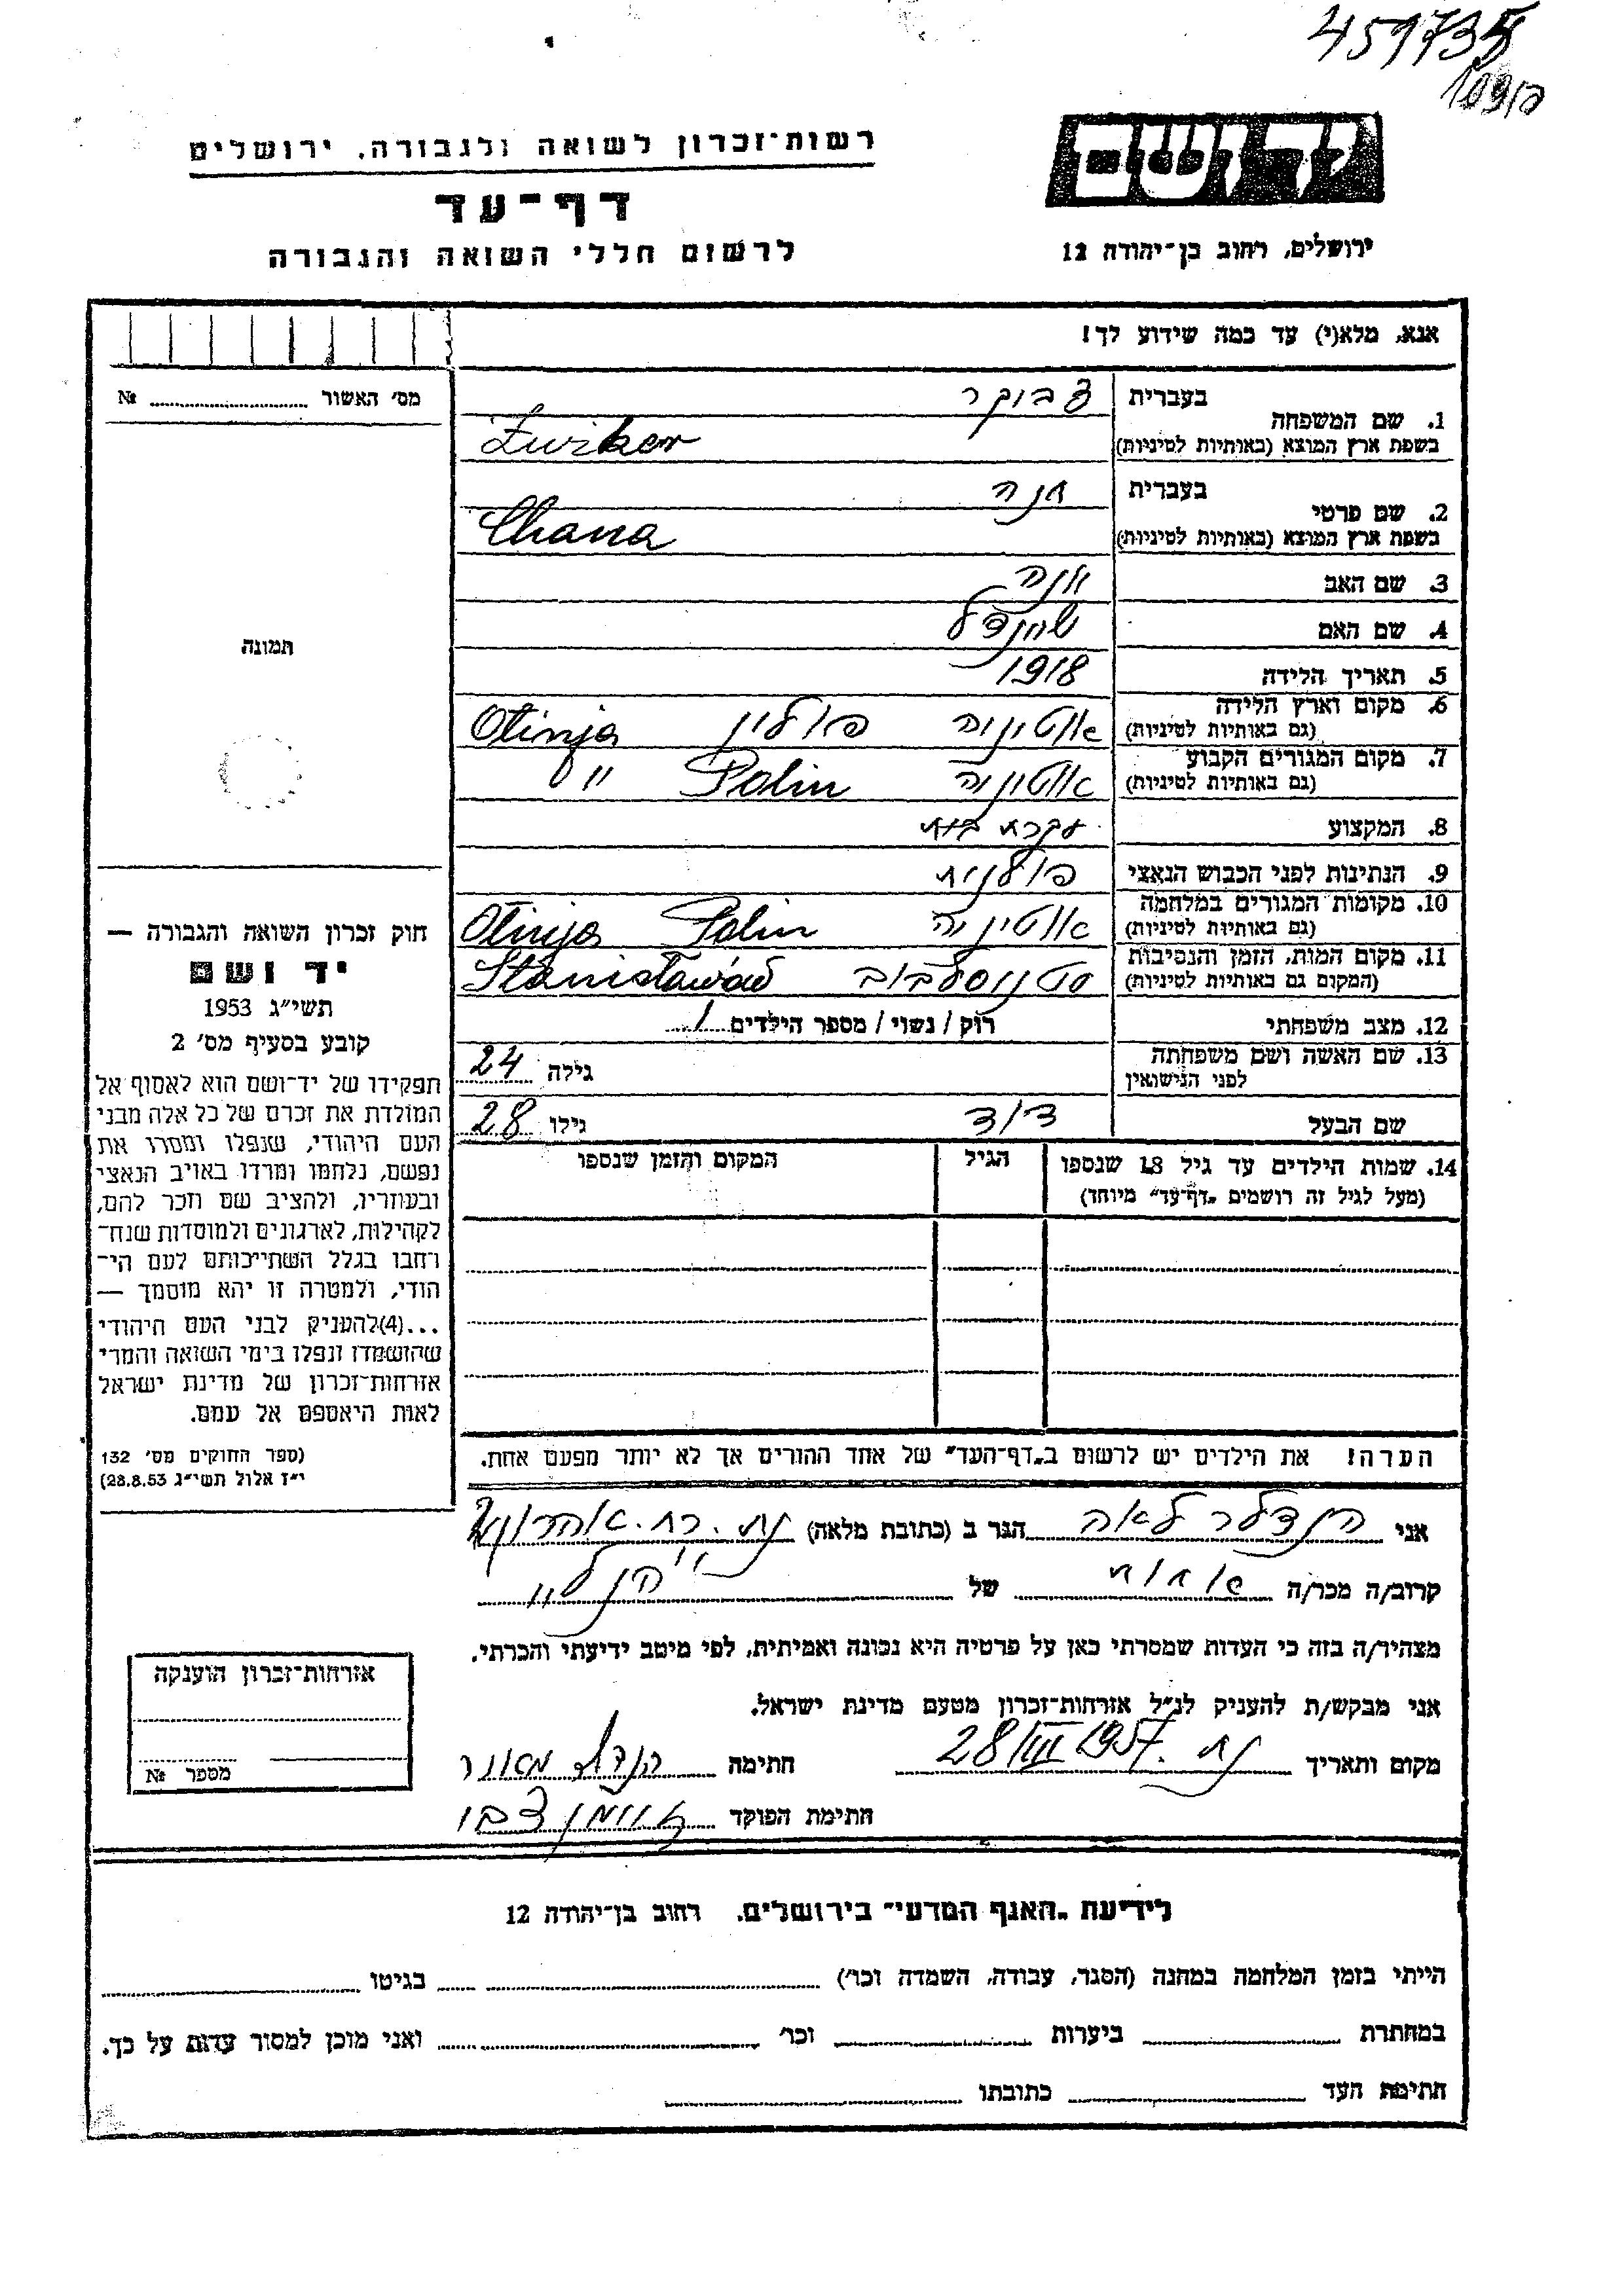 459735
109/מ
יד ושם
רשות־זכרון לשואה ולגבורה, ירושלים
דף־עד
לרשום חללי השואה והגבורה
ירושלים, רחוב בן־יהודה 12
אנא, מלא(י) עד כמה שידוע לך!
מס' האשור № ........
תמונה
1. שם המשפחה
בעברית
צבוקר
בשפת ארץ המוצא (באותיות לטיניות)
Zwiker
2. שם פרטי
בעברית
חנה
בשפת ארץ המוצא (באותיות לטיניות)
Chana
3. שם האב
4. שם האם
שיינדל
5. תאריך הלידה 1918
6. מקום וארץ הלידה
(גם באותיות לטיניות)
אוטיניה פולין Otinja
7. מקום המגורים הקבוע
(גם באותיות לטיניות)
אוטיניה Polin "
8. המקצוע
עקרת בית
9. הנתינות לפני הכבוש הנאצי
פולנית
10. מקומות המגורים במלחמה
(גם באותיות לטיניות)
אוטיניה Polin Otinja
11. מקום המות, הזמן והנסיבות
(המקום גם באותיות לטיניות)
סטניסלבוב Stanisławów
12. מצב משפחתי
רוק / נשוי / מספר הילדים 1
13. שם האשה ושם משפחתה
לפני הנישואין
גילה 24
שם הבעל דוד גילו 28
14. שמות הילדים עד גיל 18 שנספו
(מעל לגיל זה רושמים „דף־עד" מיוחד)
הגיל
המקום והזמן שנספו
הערה! את הילדים יש לרשום ב„דף־העד" של אחד ההורים אך לא יותר מפעם אחת.
חוק זכרון השואה והגבורה —
יד ושם
תשי"ג 1953
קובע בסעיף מס' 2
תפקידו של יד־ושם הוא לאסוף אל
המולדת את זכרם של כל אלה מבני
העם היהודי, שנפלו ומסרו את
נפשם, נלחמו ומרדו באויב הנאצי
ובעוזריו, ולהציב שם וזכר להם,
לקהילות, לארגונים ולמוסדות שנח־
רבו בגלל השתייכותם לעם הי־
הודי, ולמטרה זו יהא מוסמך —
...(4)להעניק לבני העם היהודי
שהושמדו ונפלו בימי השואה והמרי
אזרחות־זכרון של מדינת ישראל
לאות היאספם אל עמם.
(ספר החוקים מס' 132
י"ז אלול תשי"ג 28.8.53)
אני הנדלר לאה הגר ב (כתובת מלאה) נת. רח.
קרוב/ה מכר/ה אחות של
מצהיר/ה בזה כי העדות שמסרתי כאן על פרטיה היא נכונה ואמיתית, לפי מיטב ידיעתי והכרתי.
אני מבקש/ת להעניק לנ"ל אזרחות־זכרון מטעם מדינת ישראל.
מקום ותאריך נת. 28/III 1957 חתימה
חתימת הפוקד
אזרחות־זכרון הוענקה
מספר №
לידיעת „האגף המדעי" בירושלים, רחוב בן־יהודה 12
הייתי בזמן המלחמה במחנה (הסגר, עבודה, השמדה וכר') ........ בגיטו ........
במחתרת ........ ביערות ........ וכר' ........ ואני מוכן למסור עדות על כך.
חתימת העד ........ כתובתו ........